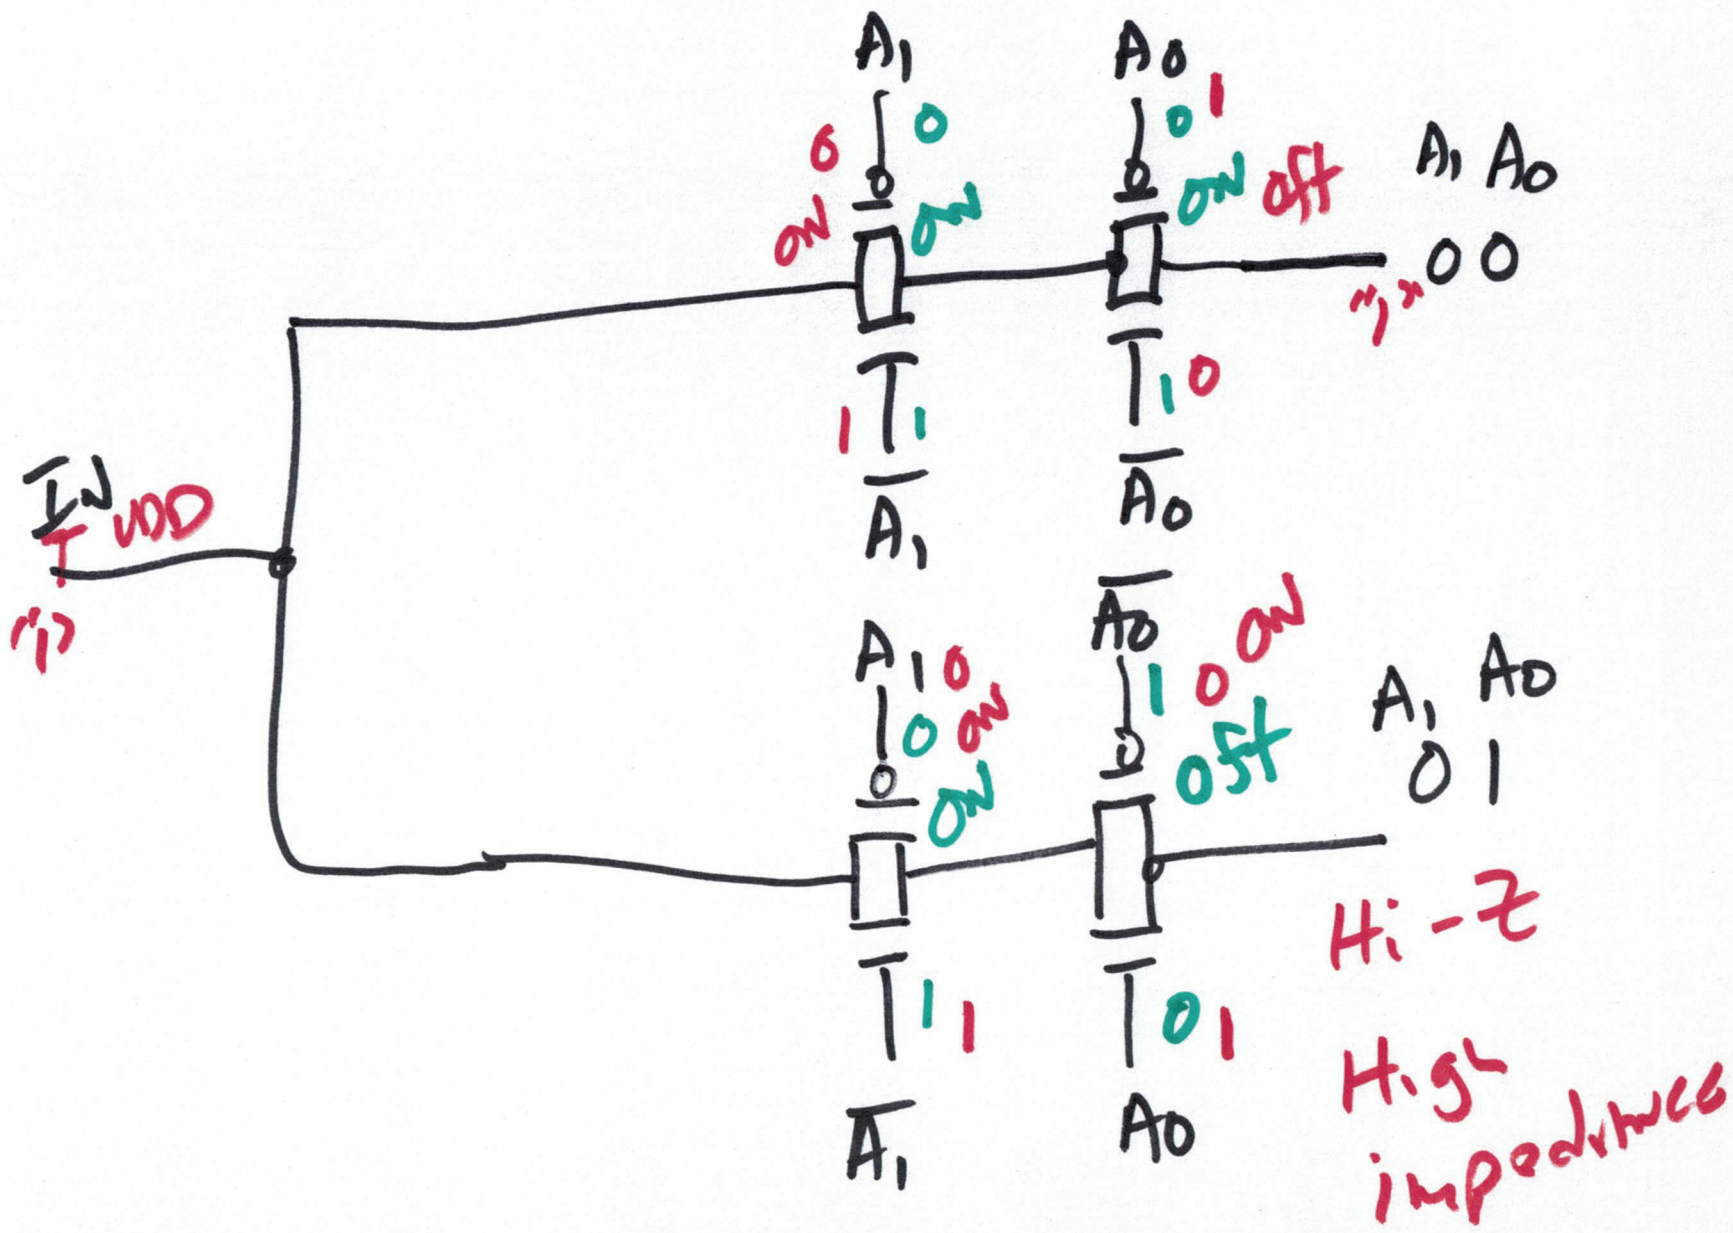 A1 A0
0 0 0 1
ON ON ON Off
A1 A0
0 0
"1"
1 1 1 0
A̅1̅ A̅0̅
IN VDD
"1"
A1 A̅0̅
0 1 0 ON
0 ON Off
ON
A1 A0
0 1
Hi-Z
1 1 0 1
A̅1̅ A0
High
impedance